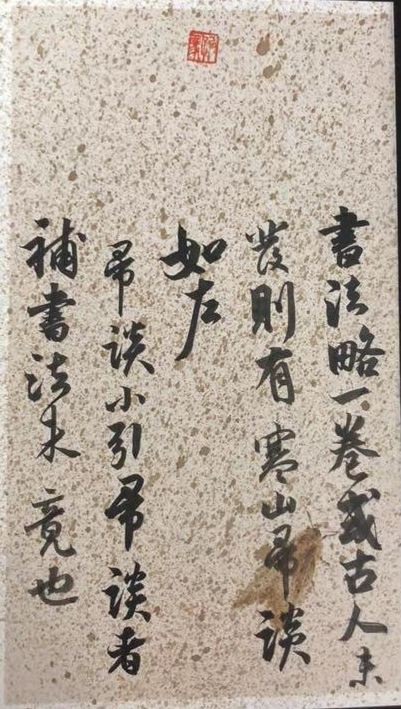 書法略一卷或古人未
發則有寒山帚談
如左
帚談小引帚談者
補書法未竟也